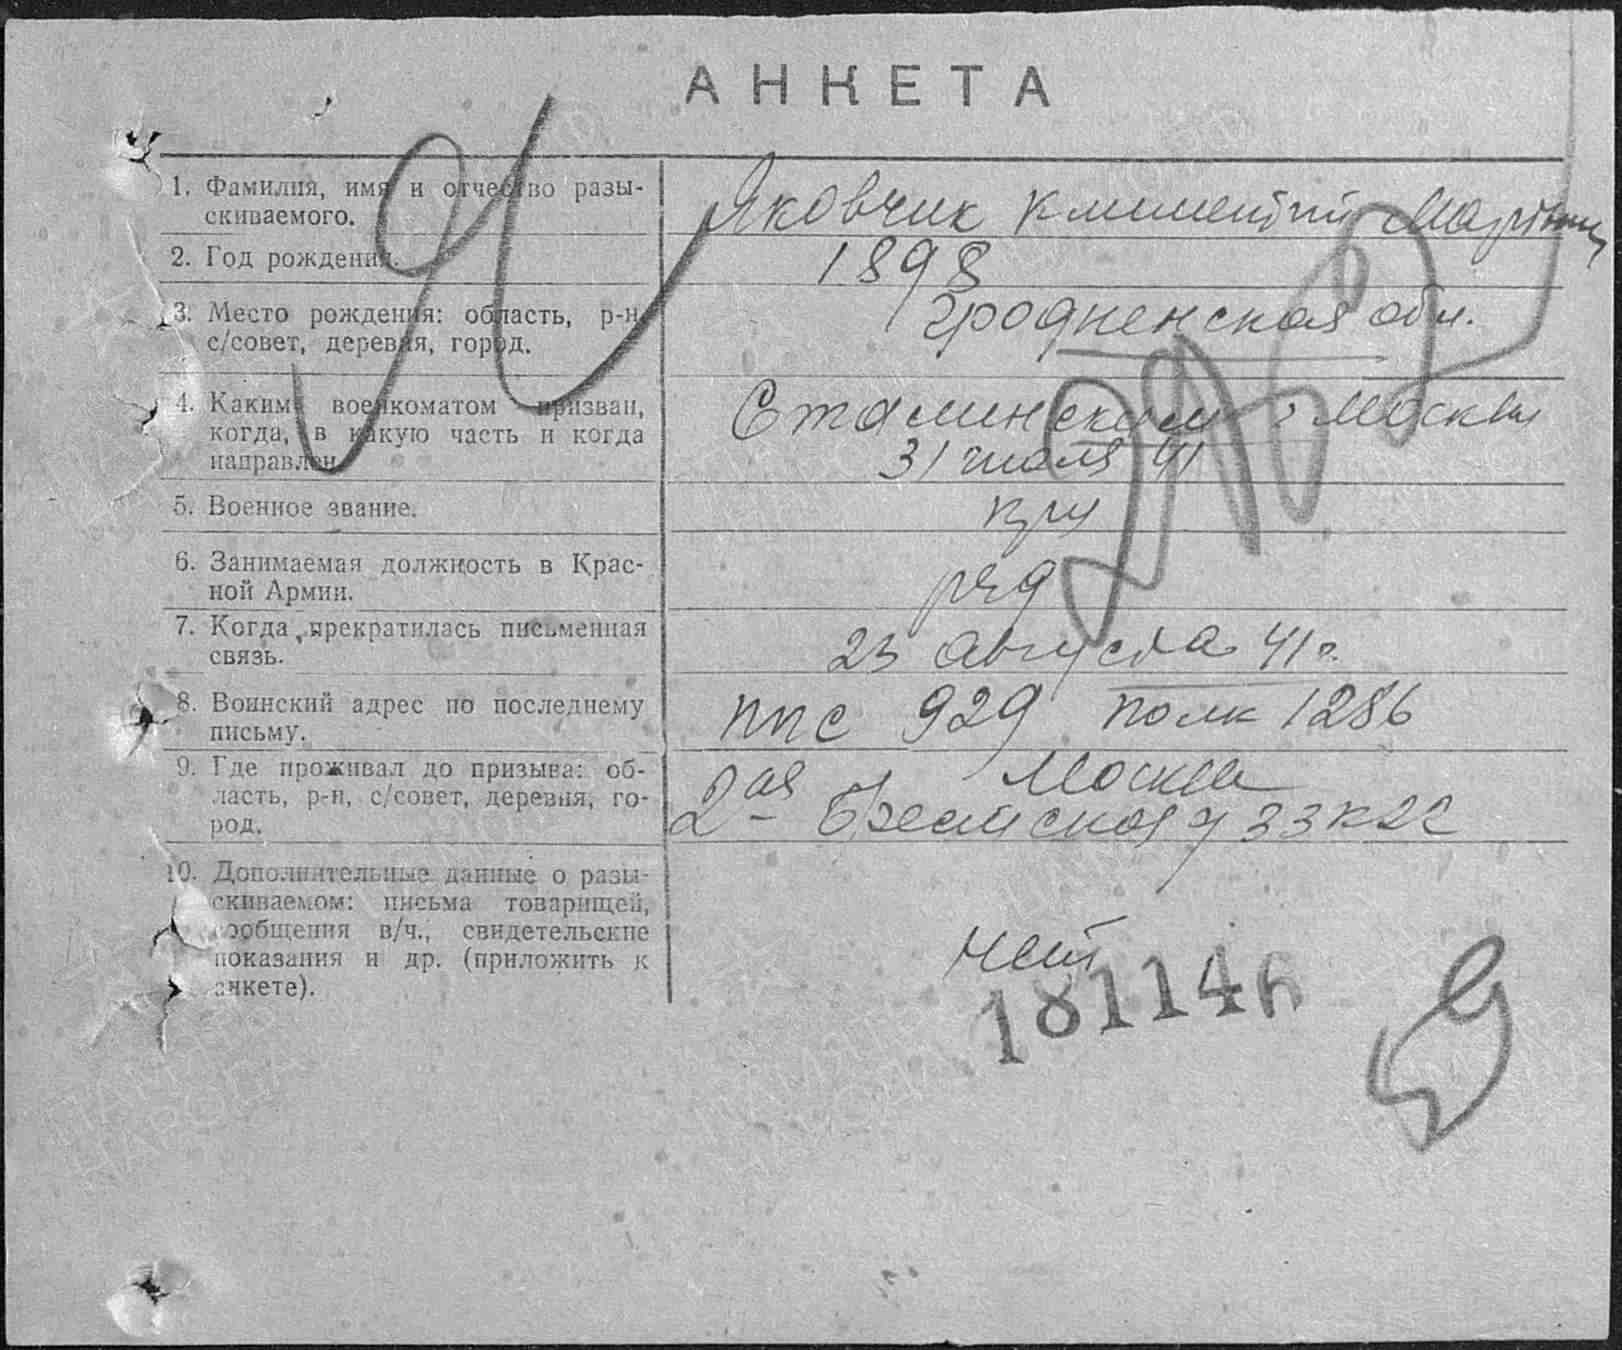 АНКЕТА
1. Фамилия, имя и отчество разы-
скиваемого.
Яковчик Климентий
2. Год рождения.
1898
3. Место рождения: область, р-н,
с/совет, деревня, город.
Гродненская обл.
4. Каким военкоматом призван,
когда, в какую часть и когда
направлен.
Сталинским г Москвы
31 июля 41
5. Военное звание.
кр-ц
6. Занимаемая должность в Крас-
ной Армии.
ряд
7. Когда прекратилась письменная
связь.
23 августа 41 г.
8. Воинский адрес по последнему
письму.
ппс 929 полк 1286
9. Где проживал до призыва: об-
ласть, р-н, с/совет, деревня, го-
род.
Москва
2ая д 33 к 22
10. Дополнительные данные о разы-
скиваемом: письма товарищей,
сообщения в/ч., свидетельские
показания и др. (приложить к
анкете).
нет
Я